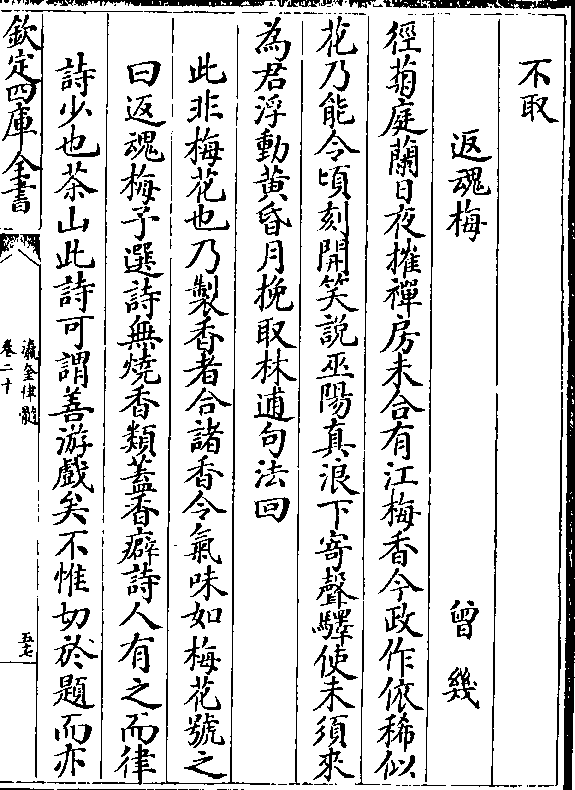 不取
返魂梅　曾幾
徑菊庭蘭日夜摧禪房未合有江梅香今政作依稀似
花乃能令頃刻開笑說巫陽真浪下寄聲驛使未須來
為君浮動黄昏月挽取林逋句法回
此非梅花也乃製香者合諸香令氣味如梅花號之
曰返魂梅予選詩無燒香類蓋香癖詩人有之而律
詩少也茶山此詩可謂善游戲矣不惟切於題而亦
欽定四庫全書
瀛奎律髓
卷二十
五七